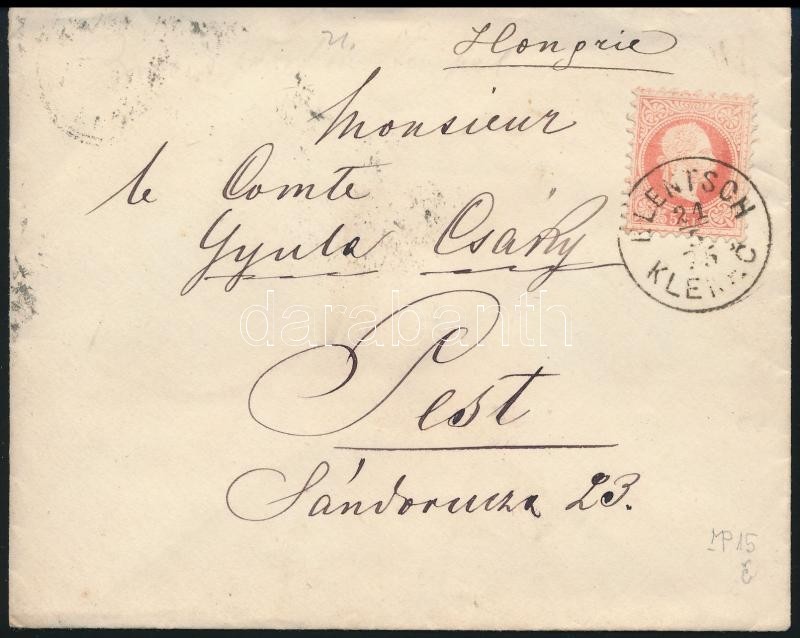 21.
Hongrie
Monsieur
le Comte
Gyula Csáky
Pest
Sándorucza 23.
KLENTSCH
21
75
KLENEČ
darabanth
MP 15